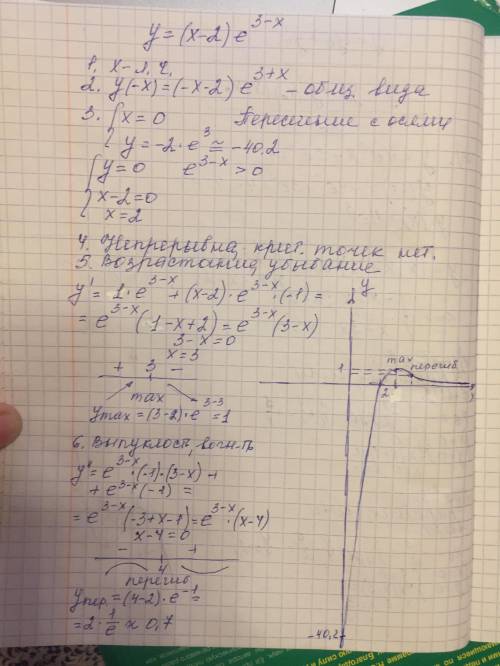 y = (x-2) e^{3-x}
1. x - л. ч.
2. y(-x) = (-x-2) e^{3+x} - общ. вида
3. { x = 0    Пересечение с осями
y = -2·e^3 ≅ -40.2
{ y = 0    e^{3-x} > 0
x-2=0
x=2
4. Непрерывна, крит. точек нет.
5. Возрастание, убывание
y' = 1·e^{3-x} + (x-2)·e^{3-x}·(-1) =
= e^{3-x} (1-x+2) = e^{3-x} (3-x)
3-x=0
x=3
+ 3 -
max
y max = (3-2)·e^{3-3} = 1
6. Выпуклость, вогн-ть
y'' = e^{3-x}·(-1)·(3-x) +
+ e^{3-x}(-1) =
= e^{3-x} (-3+x-1) = e^{3-x}·(x-4)
x-4=0
- 4 +
перегиб
y пер. = (4-2)·e^{-1} =
= 2·1/e ≈ 0,7
y
max
перегиб
1
2
-40,2